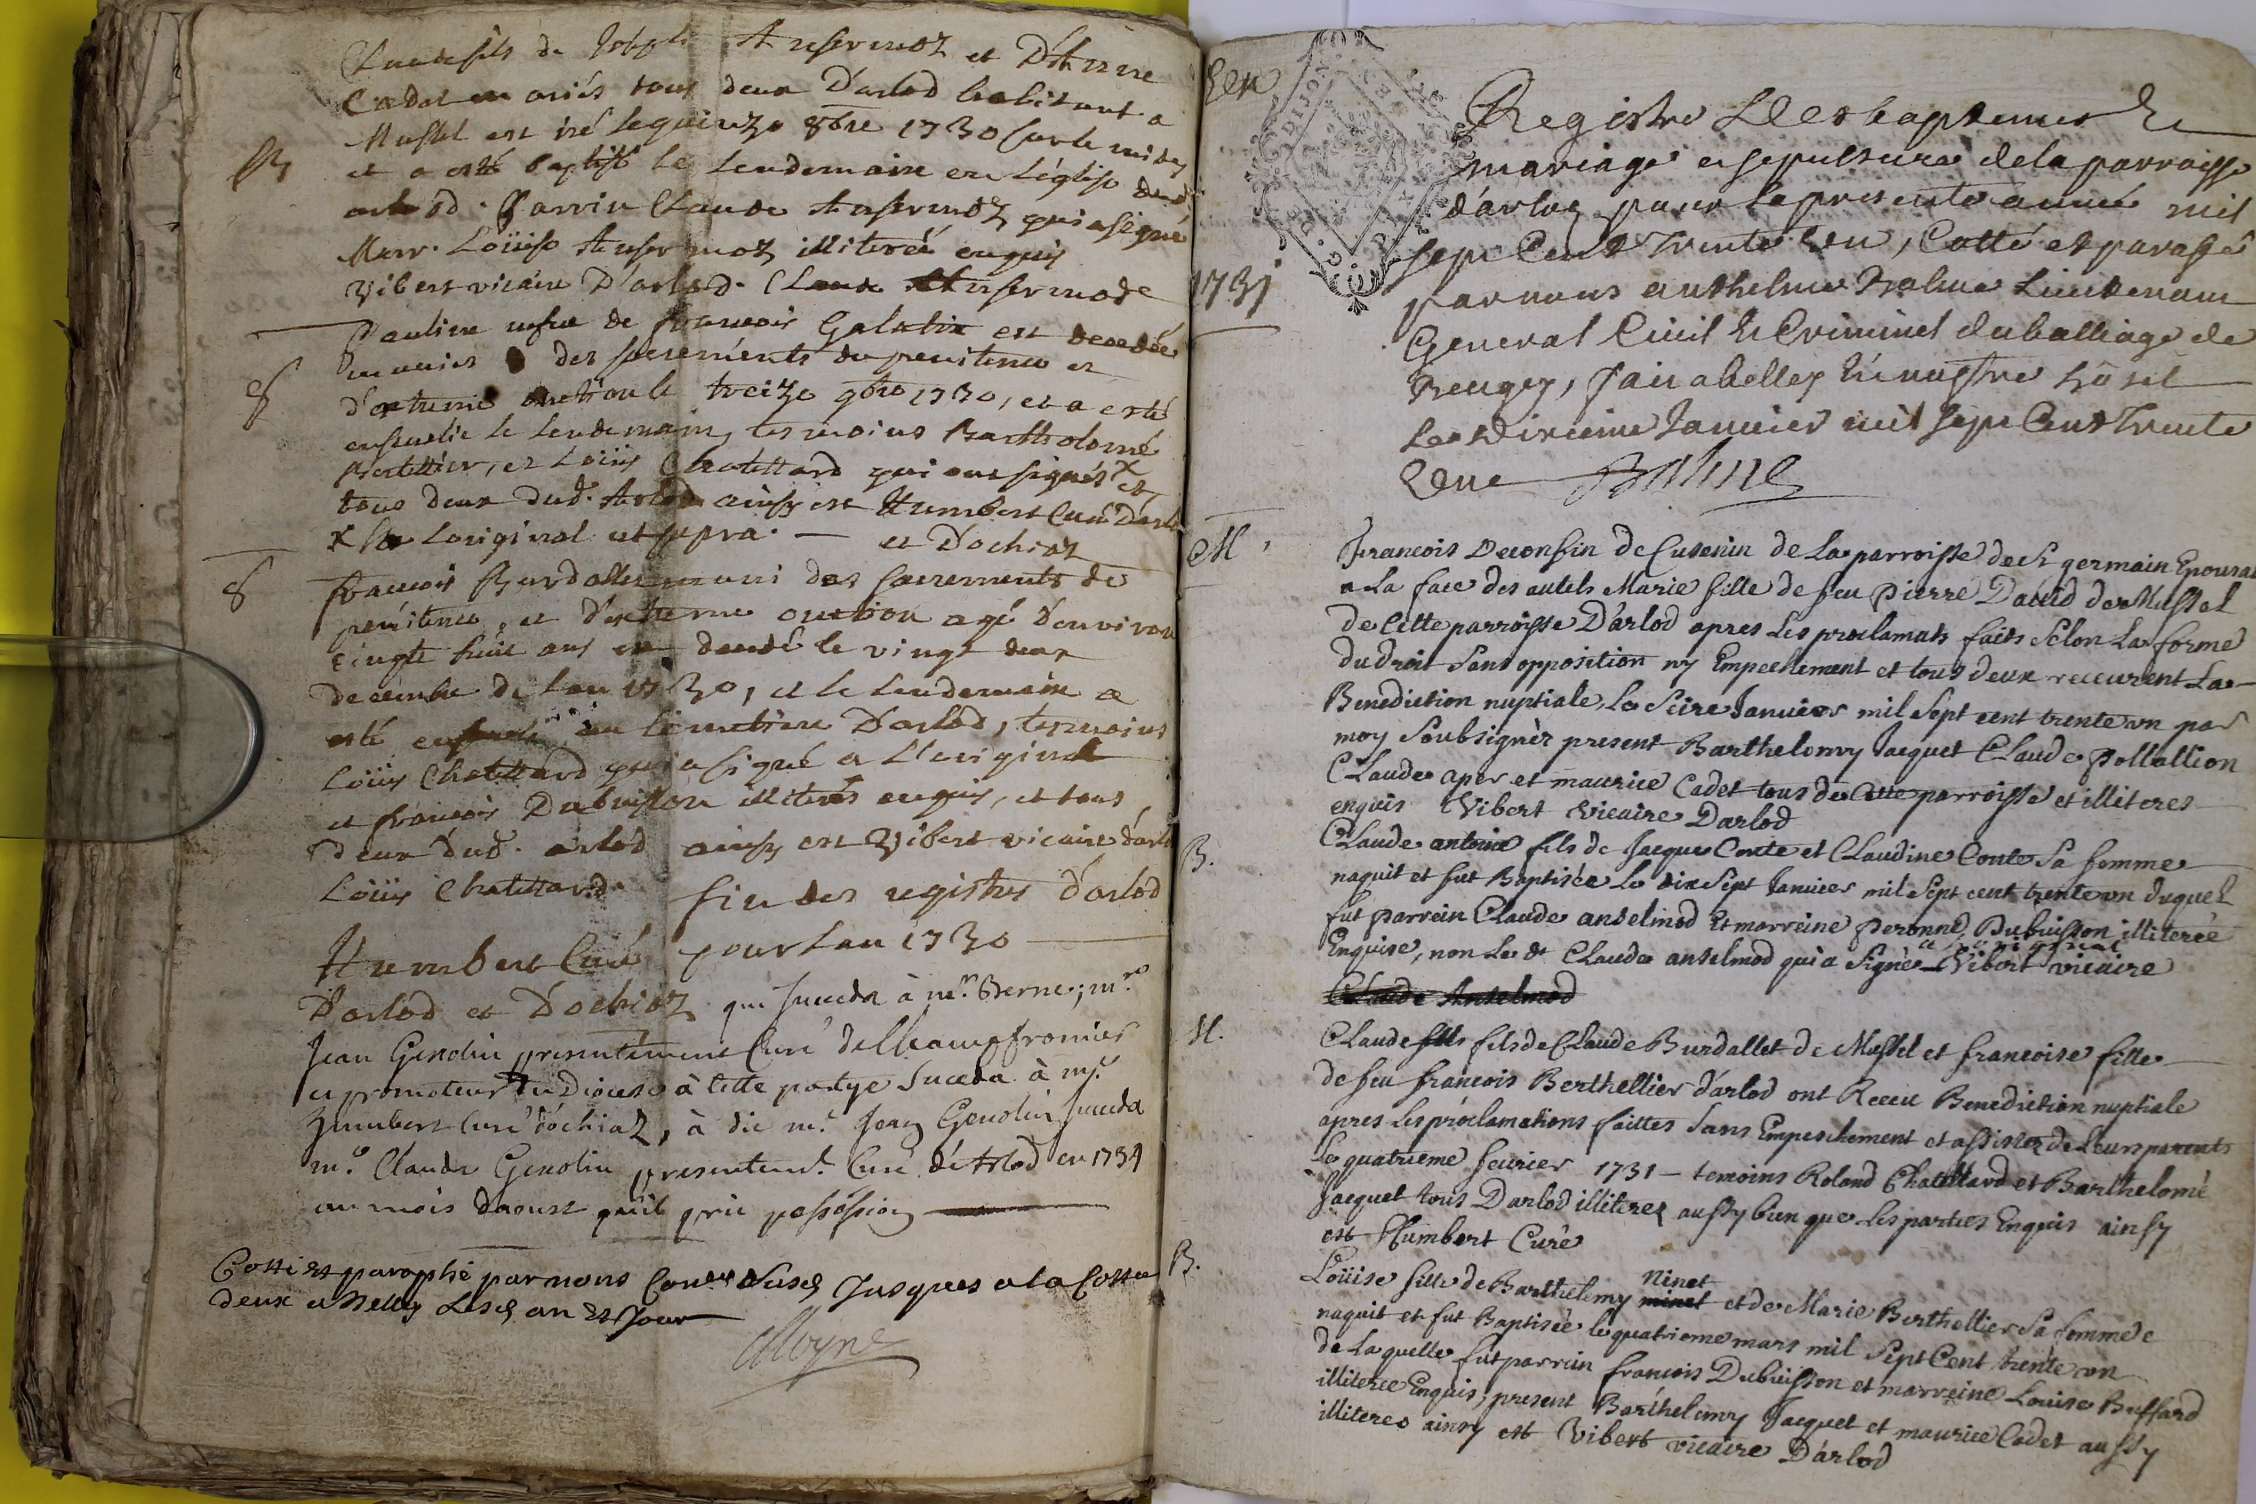 Claude fils de Joseph Ansermoz et D'Etienne
Cadet mariés tous deux D'arlod habitant a
Mussel est né le quinze 8bre 1730 sur le midy
B et a esté baptisé le lendemain en L'église dud.
arlod. Parrin Claude Ansermoz qui a signé
Marr. Loüise Ansermoz illiterée enquis
Vibert vicaire D'arlod. Claude Ansermod
Pauline vefve de francois Galatin est decedée
S munies des sacrements de penitence et
d'extreme onction le treize 9bre 1730, et a esté
ensevelie le lendemain, tesmoins Bartholomé
Berthelier, et Loüis Chatillard qui ont signés x et
tous deux dud. Arlod ainsy est Humbert Curé D'arlod
x sur Loriginal ut supra. — et D'ochiaz
S francois Burdallet muni des sacrements de
penitence, et d'extreme onction agé d'environ
vingte huit ans est decedé le vingt deux
decembre de L'an 1730, et le lendemain a
esté ensevely au cimetiere D'arlod, tesmoins
Loüis Chatillard qui a signé a L'original
et francois Dubuisson illiterés enquis, et tous
deux dud. arlod ainsy est Vibert vicaire d'arlod
Loüis Chatillard. fin des registres d'arlod
Humbert Curé pour Lan 1730
D'arlod et D'ochiaz qui succeda à mr. Berne; mre
Jean Genolin presentement Curé de Champfromier
et promoteur du Diocese à cette partye succeda à mr.
humbert Curé d'ochiaz, à dit mr. Jean Genolin succeda
mr. Claude Genolin presentemt. Curé de Arlod en 1734
au mois daoust quil prit possession
Cotté et paraphé par nous Coner susd Jusques a la Cotte
deux a Belley Lesd an et Jour
Moyne
Un
1731
DIJON
Registre des baptemes
mariage et sepulture de la parroisse
d'arlod pour la presente année mil
sept Cent trente un, Cotté et paraffé
par nous anthelme Balme Lieutenant
General Civil et Criminel du balliage de
Beugey, fait a belley en nostre hôtel
Le dixieme Janvier mil sept Cent trente
un Balme
M. Francois Deconfin de Cusenin de La parroisse de St germain Epousat
a La face des autels Marie fille de feu Pierre David de Mussel
de Cette parroisse D'arlod apres Les proclamats faits Selon La forme
du droit Sans opposition ny Empechement et tous deux receurent La
Benediction nuptiale, Le Seize Janvier mil Sept cent trente un par
moy Soubsignér present Barthelomy Jacquet Claude Pollallion
Claude aper et maurice Cadet tous de Cette parroisse et illiteres
enquis Vibert Vicaire Darlod
B. Claude antoine fils de Jacque Conte et Claudine Conte Sa femme
naquit et fut Baptisée Le dix Sept Janvier mil Sept cent trente un duquel
fut parrein Claude anselmod Et marreine Peronne Dubuisson illiterée
Enquise, non Le dt Claude anselmod qui à Signé a l'original Vibert vicaire
Claude Anselmod
M. Claude fils fils de Claude Burdallet de Mussel et francoise fille
de feu francois Berthellier d'arlod ont Receu Benediction nuptiale
apres Les proclamations faittes Sans Empeschement et assistez de Leurs parents
Le quatrieme fevrier 1731 — temoins Roland Chatillard et Barthelomé
Jacquet tous Darlod illiteres aussy bien que Les parties Enquis ainsy
est Humbert Curé
B. Loüise fille de Barthelemy minet Ninet et de Marie Berthellier Sa femme
naquit et fut Baptisée le quatrieme mars mil Sept Cent trente un
de Laquelle fut parrain francois Dubuisson et marreine Louise Buffard
illiterée Enquis, present Barthelemy Jacquet et maurice Cadet aussy
illiteres ainsy est Vibert vicaire D'arlod